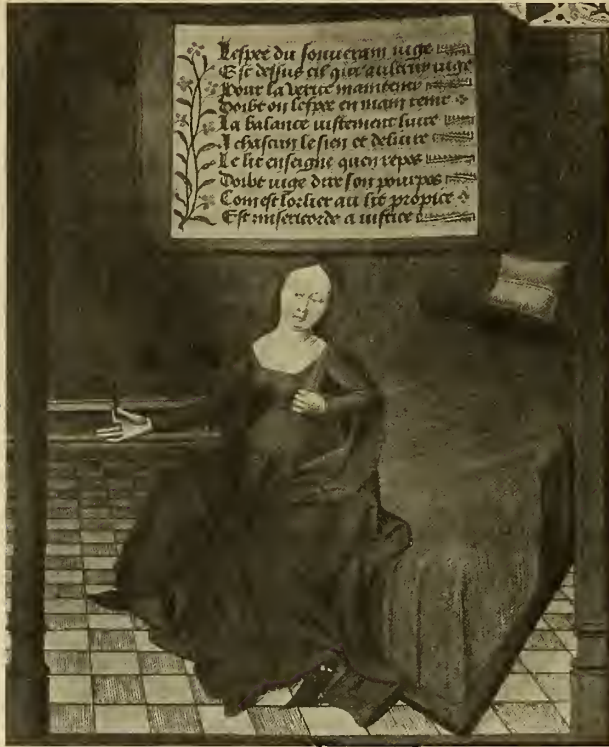 Lespee du souverain iuge
Est dessus cil qui aultruy iuge
Pour la verite maintenir
Doibt on lespee en main tenir
La balance iustement livre
A chascun le sien et delivre
Le lit enseigne quen repos
Doibt iuge dire son pourpos
Com est lorlier au lit propice
Est misericorde a iustice